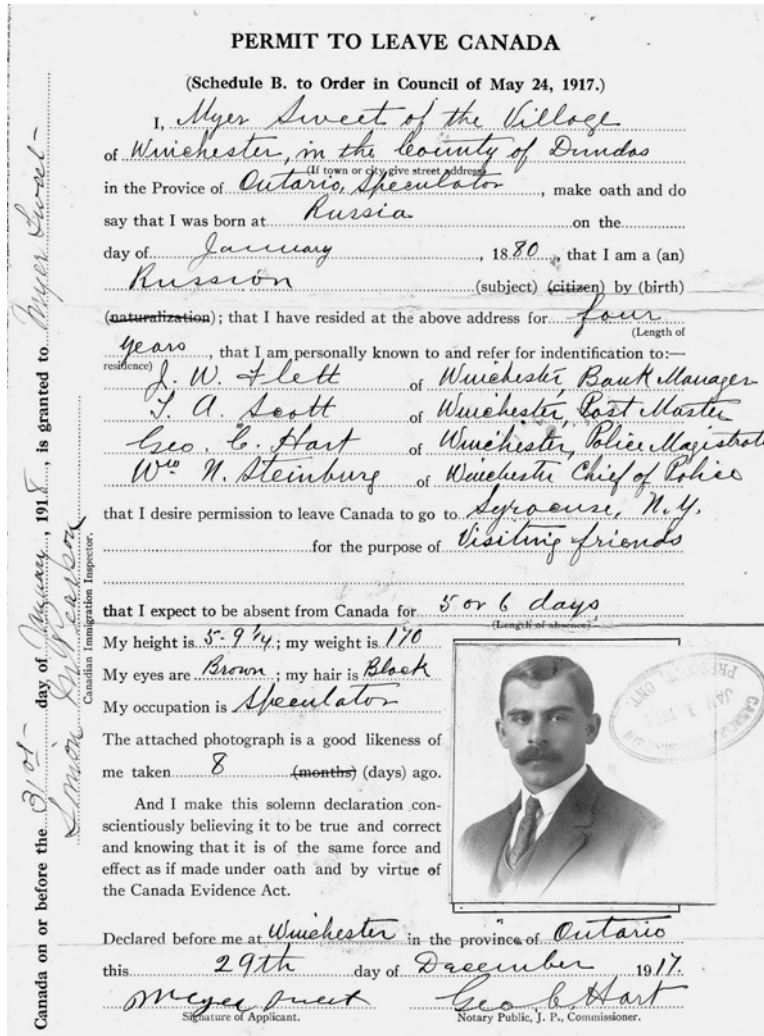 PERMIT TO LEAVE CANADA
(Schedule B. to Order in Council of May 24, 1917.)
I, Myer Sweet of the Village
of Winchester, in the County of Dundas
(If town or city give street address)
in the Provice of Ontario, Speculator, make oath and do
say that I was born at Russia on the
day of January, 1880, that I am a (an)
Russion (subject) (citizen) by (birth)
(naturalization); that I have resided at the above address for four
(Length of
years, that I am personally known to and refer for indentification to:—
residence)
J. W. Flett of Winchester, Bank Manager
T. A. Scott of Winchester, Post Master
Geo. C. Hart of Winchester, Police Magistrate
Wm N. Steinburg of Winchester Chief of Police
that I desire permission to leave Canada to go to Syracuse, N.Y.
for the purpose of Visiting friends
that I expect to be absent from Canada for 5 or 6 days
(Length of absence)
My height is 5-9 1/4; my weight is 170
My eyes are Brown; my hair is Black
My occupation is Speculator
The attached photograph is a good likeness of
me taken 8 (months) (days) ago.
And I make this solemn declaration con-
scientiously believing it to be true and correct
and knowing that it is of the same force and
effect as if made under oath and by virtue of
the Canada Evidence Act.
Declared before me at Winchester in the province of Ontario
this 29th day of December 1917.
Myer Sweet Geo C. Hart
Signature of Applicant. Notary Public, J. P., Commissioner.
Canada on or before the 31st day of January, 1918, is granted to Myer Sweet
Pearson
Canadian Immigration Inspector.
PRESCOTT, ONT.